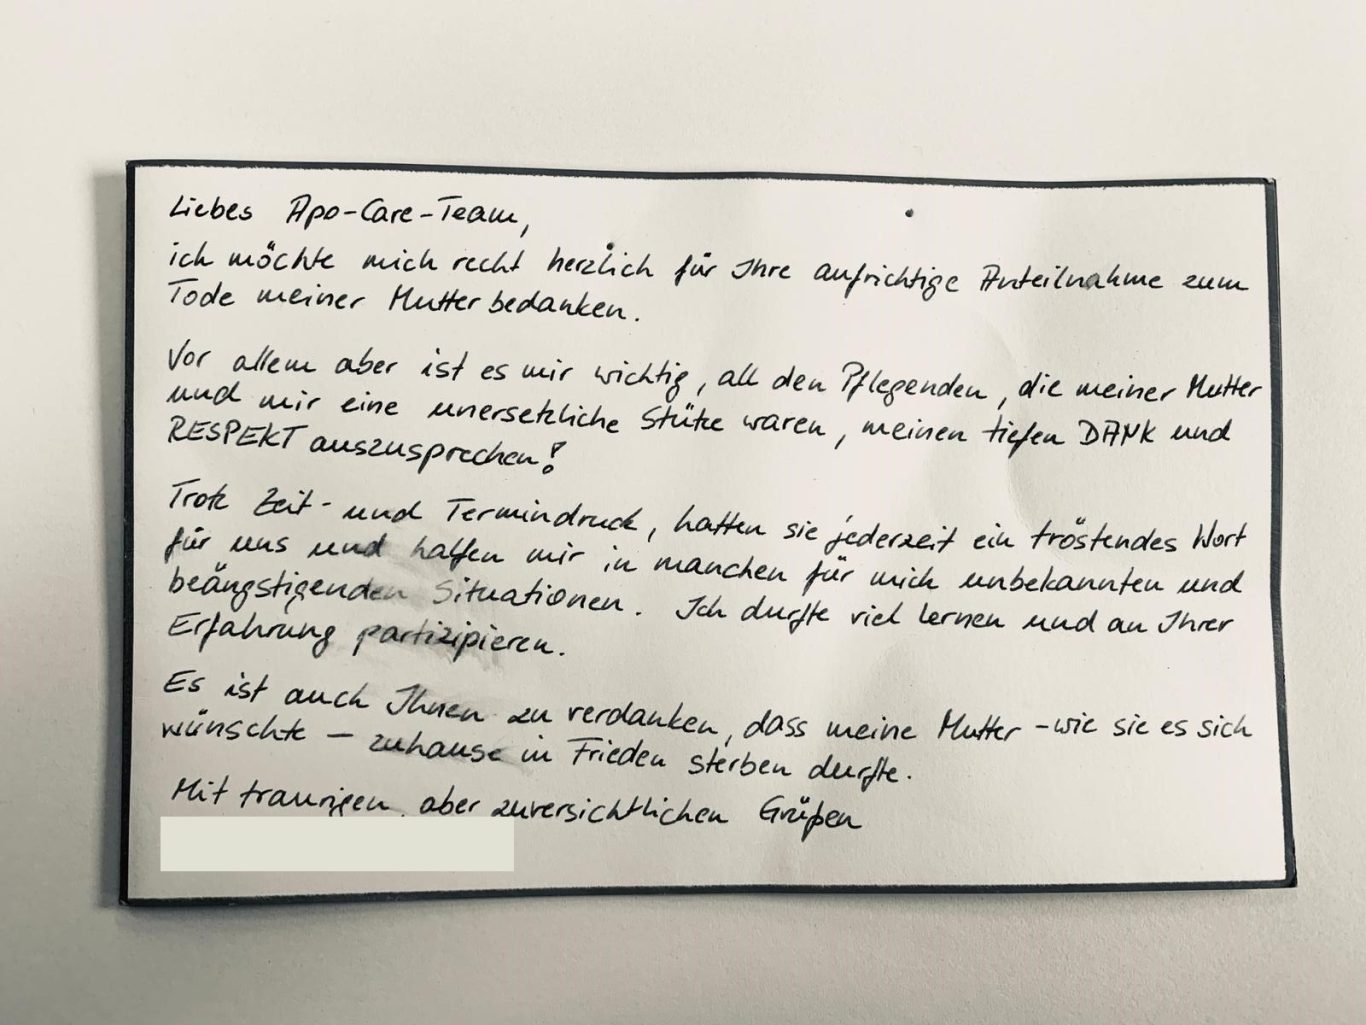 Liebes Apo-Care-Team,
ich möchte mich recht herzlich für Ihre aufrichtige Anteilnahme zum
Tode meiner Mutter bedanken.
Vor allem aber ist es mir wichtig, all den Pflegenden, die meiner Mutter
und mir eine unersetzliche Stütze waren, meinen tiefen DANK und
RESPEKT auszusprechen!
Trotz Zeit- und Termindruck, hatten sie jederzeit ein tröstendes Wort
für uns und halfen mir in manchen für mich unbekannten und
beängstigenden Situationen. Ich durfte viel lernen und an Ihrer
Erfahrung partizipieren.
Es ist auch Ihnen zu verdanken, dass meine Mutter - wie sie es sich
wünschte - zuhause in Frieden sterben durfte.
Mit traurigen, aber zuversichtlichen Grüßen